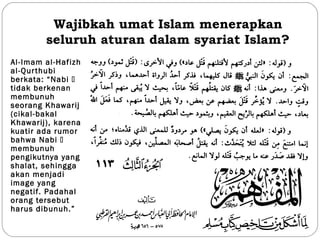 Wajibkah umat Islam menerapkan
seluruh aturan dalam syariat Islam?
Al-Imam al-Hafizh
al-Qurthubi
berkata: "Nabi
tidak berkenan
membunuh
seorang Khawarij
(cikal-bakal
Khawarij), karena
kuatir ada rumor
bahwa Nabi
membunuh
pengikutnya yang
shalat, sehingga
akan menjadi
image yang
negatif. Padahal
orang tersebut
harus dibunuh."
و (قوله: «لئن أدركتهم لأقتلنهم قتل عاد») وفي الأخرى: (قتل ثمود) ووجه
الجمع: أن يكون النبي ﷺ قال كليهما، فذكر أحد الرواة أحدهما، وذكر الآخر
الآخر. ومعنى هذا: أنه ﷺ كان يقتلهم قتلاً عاماً، بحيث لا يبقى منهم أحداً في
وقت واحد، لا يؤخر قتل بعضهم عن بعض، ولا يقيل أحداً منهم، كما فعل الله
بعاد، حيث أهلكهم بالريح العقيم، وبثمود حيث أهلكهم بالصيحة.
و (قوله: «لعله أن يكون يصلي») هو مردود للمعنى الذي قدمناه؛ من أنه
إنما امتنع من قتله لئلا يتحدث: أنه يقتل أصحابه المصلين، فيكون ذلك منفراً،
وإلا فقد صدر عنه ما يوجب قتله لولا المانع.
الجزء الثالث
١١٣
المفهم
٥٧٨ - ٦٥٦ هجرية